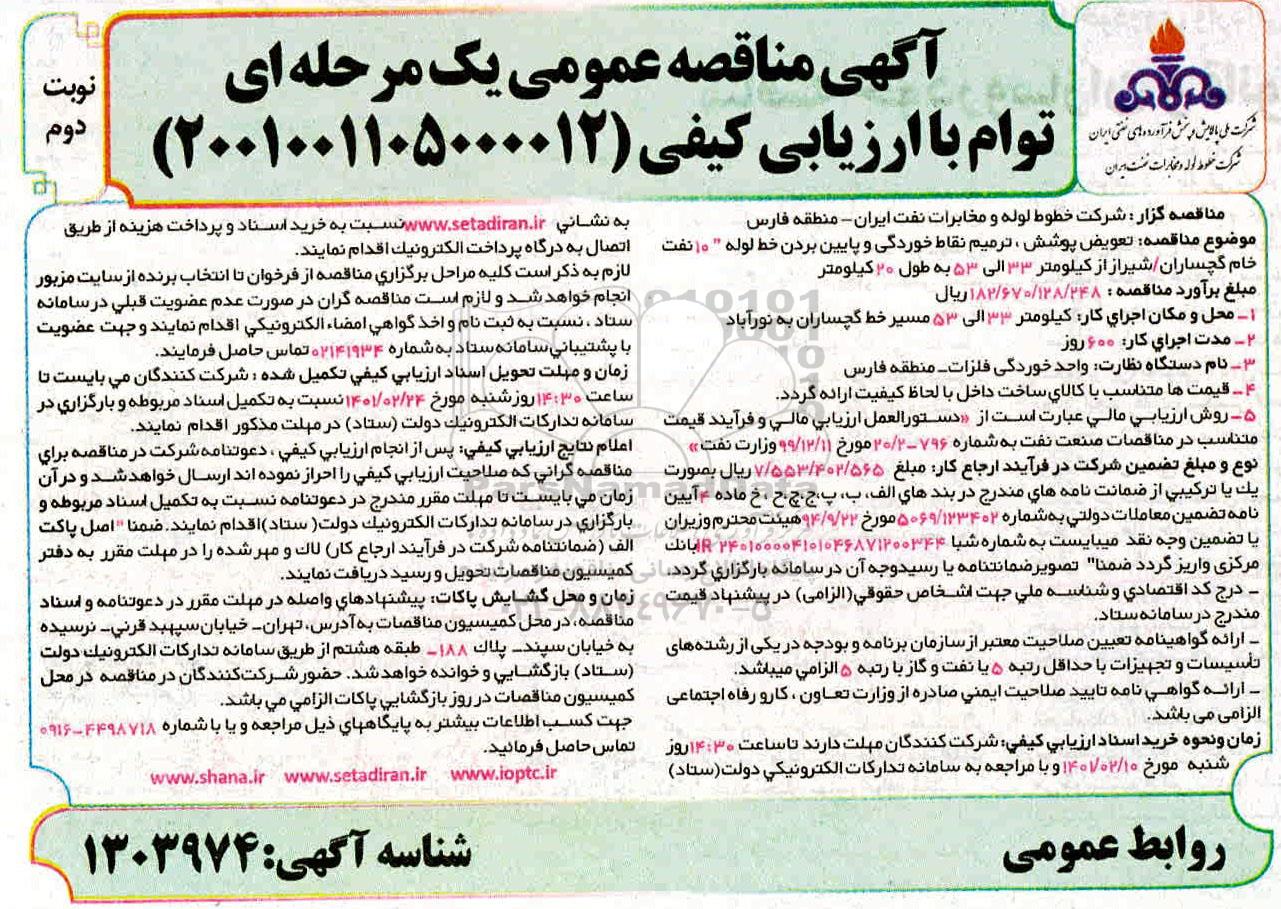 شرکت ملی پالایش و پخش فرآورده‌های نفتی ایران
شرکت خطوط لوله و مخابرات نفت ایران
آگهی مناقصه عمومی یک مرحله ای
توام با ارزیابی کیفی (۲۰۰۱۰۰۱۱۰۵۰۰۰۰۱۲)
نوبت
دوم
مناقصه گزار : شرکت خطوط لوله و مخابرات نفت ایران – منطقه فارس
موضوع مناقصه: تعویض پوشش ، ترمیم نقاط خوردگی و پایین بردن خط لوله " ۱۰ نفت
خام گچساران/شیراز از کیلومتر ۳۳ الی ۵۳ به طول ۲۰ کیلومتر
مبلغ برآورد مناقصه : ۱۸۲/۶۷۰/۱۲۸/۲۴۸ ریال
۱ـ محل و مکان اجراي کار: کیلومتر ۳۳ الی ۵۳ مسیر خط گچساران به نورآباد
۲ـ مدت اجراي کار: ۶۰۰ روز
۳ـ نام دستگاه نظارت: واحد خوردگی فلزات ـ منطقه فارس
۴ـ قیمت ها متناسب با کالاي ساخت داخل با لحاظ کیفیت ارائه گردد.
۵ـ روش ارزیابـي مالـي عبارت اسـت از «دسـتورالعمل ارزیابي مالـي و فرآیند قیمت
متناسب در مناقصات صنعت نفت به شماره ۷۹۶-۲۰/۲ مورخ ۹۹/۱۲/۱۱ وزارت نفت»
نوع و مبلغ تضمین شرکت در فرآیند ارجاع کار: مبلغ ۷/۵۵۳/۴۰۲/۵۶۵ ریال بصورت
یك یا ترکیبي از ضمانت نامه هاي مندرج در بند هاي الف، ب، پ،ج،چ،ح ، خ ماده ۴ آیین
نامه تضمین معاملات دولتي به شماره ۵۰۶۹/۱۲۳۴۰۲ مورخ ۹۴/۹/۲۲ هیئت محترم وزیران
یا تضمین وجه نقد میبایست به شماره شبا IR ۲۴۰۱۰۰۰۰۴۱۰۱۰۴۶۸۷۱۲۰۰۳۴۴ بانك
مرکزی واریز گردد ضمنا" تصویر ضمانتنامه یا رسید وجه آن در سامانه بارگزاري گردد.
ـ درج کد اقتصادي و شناسـه ملي جهت اشـخاص حقوقي(الزامی) در پیشنهاد قیمت
مندرج در سامانه ستاد.
ـ ارائه گواهینامه تعیین صلاحیت معتبر از سازمان برنامه و بودجه در یکی از رشته‌های
تأسیسات و تجهیزات با حداقل رتبه ۵ یا نفت و گاز با رتبه ۵ الزامي میباشد.
ـ ارائـه گواهـي نامه تایید صلاحیت ایمني صادره از وزارت تعـاون ، کار و رفاه اجتماعی
الزامی می باشد.
زمان و نحوه خرید اسناد ارزیابي کیفي: شرکت کنندگان مهلت دارند تا ساعت ۱۴:۳۰ روز
شنبه مورخ ۱۴۰۱/۰۲/۱۰ و با مراجعه به سامانه تدارکات الکترونیکي دولت (ستاد)
به نشـاني www.setadiran.ir نسـبت به خرید اسـناد و پرداخت هزینه از طریق
اتصال به درگاه پرداخت الکترونیك اقدام نمایند.
لازم به ذکر است کلیه مراحل برگزاري مناقصه از فرخوان تا انتخاب برنده از سایت مزبور
انجام خواهد شـد و لازم اسـت مناقصه گران در صورت عدم عضویت قبلي در سامانه
ستاد ، نسبت به ثبت نام و اخذ گواهي امضاء الکترونیکي اقدام نمایند و جهت عضویت
با پشتیباني سامانه ستاد به شماره ۰۲۱۴۱۹۳۴ تماس حاصل فرمایند.
زمان و مهلت تحویل اسناد ارزیابي کیفي تکمیل شده : شرکت کنندگان مي بایست تا
ساعت ۱۴:۳۰ روز شنبه مورخ ۱۴۰۱/۰۲/۲۴ نسبت به تکمیل اسناد مربوطه و بارگزاري در
سامانه تدارکات الکترونیك دولت (ستاد) در مهلت مذکور اقدام نمایند.
اعلام نتایج ارزیابي کیفي: پس از انجام ارزیابي کیفي ، دعوتنامه شرکت در مناقصه براي
مناقصه گراني که صلاحیت ارزیابي کیفي را احراز نموده اند ارسـال خواهد شـد و در آن
زمان مي بایسـت تا مهلت مقرر مندرج در دعوتنامه نسـبت به تکمیل اسـناد مربوطه و
بارگزاري در سامانه تدارکات الکترونیك دولت( ستاد)اقدام نمایند. ضمنا " اصل پاکت
الف (ضمانتنامه شرکت در فرآیند ارجاع کار) لاك و مهر شده را در مهلت مقرر به دفتر
کمیسیون مناقصات تحویل و رسید دریافت نمایند.
زمان و محل گشـایش پاکات: پیشنهادهاي واصله در مهلت مقرر در دعوتنامه و اسناد
مناقصه، در محل کمیسیون مناقصات به آدرس، تهران ـ خیابان سپهبد قرني ـ نرسیده
به خیابان سپند ـ پلاك ۱۸۸ ـ طبقه هشتم از طریق سامانه تدارکات الکترونیك دولت
(ستاد) بازگشایي و خوانده خواهد شد. حضور شـرکت‌کنندگان در مناقصه در محل
کمیسیون مناقصات در روز بازگشایي پاکات الزامي مي باشد.
جهت کسـب اطلاعات بیشتر به پایگاههاي ذیل مراجعه و یا با شماره ۴۴۹۸۷۱۸-۰۹۱۶
تماس حاصل فرمائید.
www.shana.ir www.setadiran.ir www.ioptc.ir
ParsNamadData
۰۲۱-۸۸۳۴۹۶۷۰-۵
روابط عمومی
شناسه آگهی: ۱۳۰۳۹۷۴